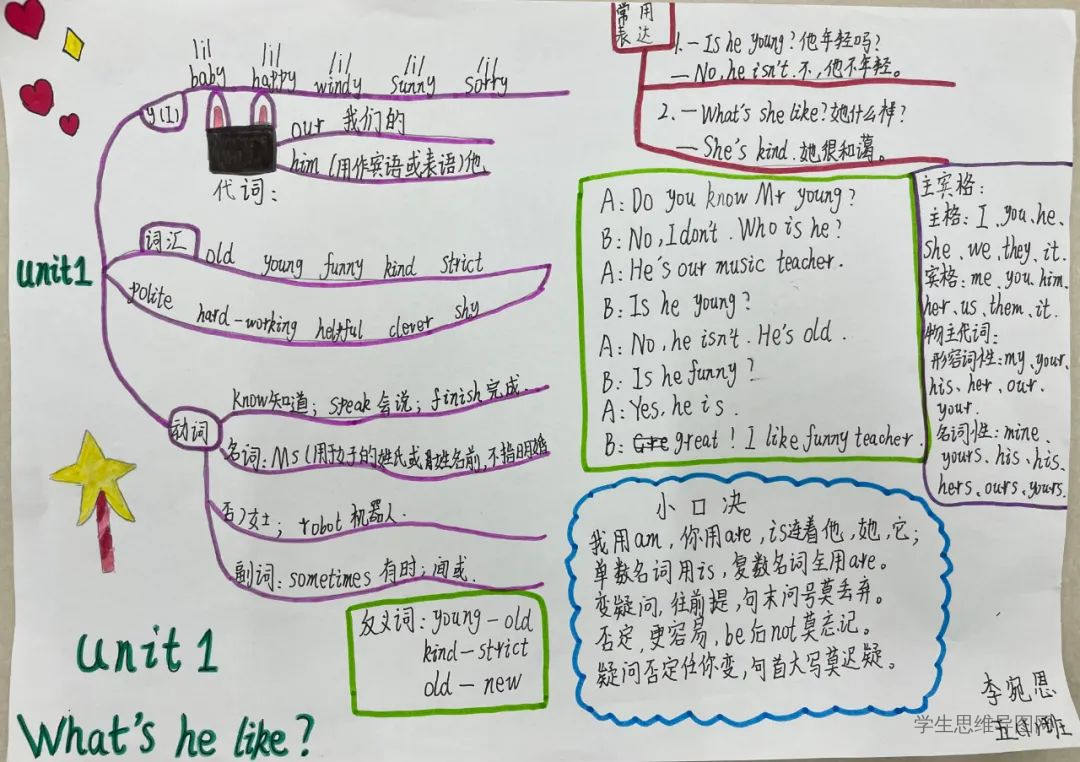 lil lil lil lil lil
baby happy windy sunny sorry
y(I)
our 我们的
him (用作宾语或表语)他、
代词:
unit1
词汇
old young funny kind strict
polite hard-working helpful clever shy
动词
know知道; speak会说; finish完成.
名词: Ms (用于女子的姓氏或姓名前,不指明婚
否)女士; robot 机器人.
副词: sometimes 有时;间或.
反义词: young-old
kind-strict
old-new
unit 1
What's he like?
常用
表达
1.-Is he young?他年轻吗?
-No, he isn't.不,他不年轻。
2.-What's she like?她什么样?
-She's kind.她很和蔼。
A: Do you know Mr young?
B: No, I don't. Who is he?
A: He's our music teacher.
B: Is he young?
A: No, he isn't. He's old.
B: Is he funny?
A: Yes, he is.
B: great! I like funny teacher.
主宾格:
主格: I、you、he、
she、we、they、it.
宾格: me、you、him、
her、us、them、it.
物主代词:
形容词性: my、your、
his、her、our、
your.
名词性: mine、
yours、his、his、
hers、ours、yours.
小口决
我用am,你用are,is连着他,她,它;
单数名词用is,复数名词全用are。
变疑问,往前提,句末问号莫丢弃。
否定,更容易,be后not莫忘记。
疑问否定任你变,句首大写莫迟疑。
李宛恩
学生思维导图